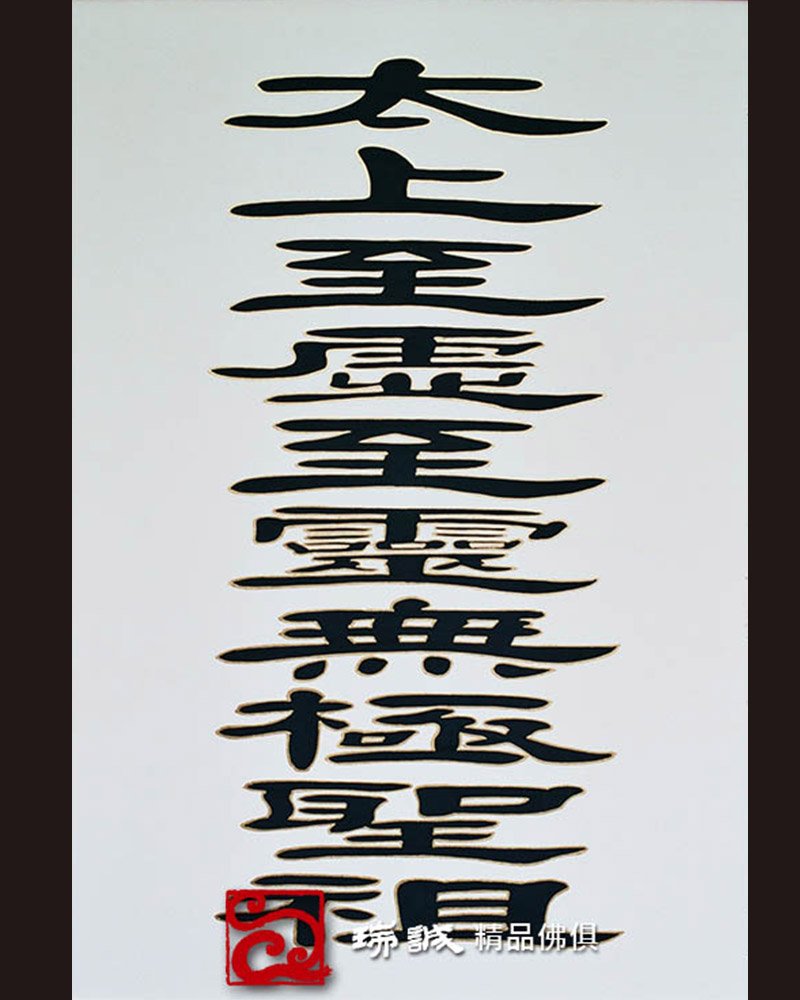 太上至虛至靈無極聖祖
瑞誠 精品佛俱